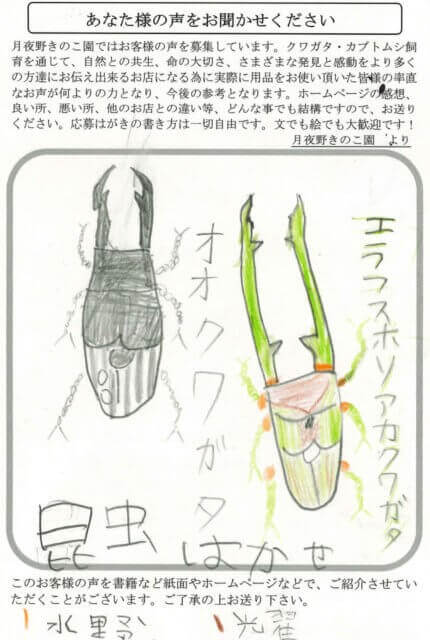 あなた様の声をお聞かせください
月夜野きのこ園ではお客様の声を募集しています。クワガタ・カブトムシ飼
育を通じて、自然との共生、命の大切さ、さまざまな発見と感動をより多く
の方達にお伝え出来るお店になる為に実際に用品をお使い頂いた皆様の率直
なお声が何よりの力となり、今後の参考となります。ホームページの感想、
良い所、悪い所、他のお店との違い等、どんな事でも結構ですので、お送り
ください。応募はがきの書き方は一切自由です。文でも絵でも大歓迎です！
月夜野きのこ園　より
オオクワガタ
エラフスホソアカクワガタ
昆虫はかせ
このお客様の声を書籍など紙面やホームページなどで、ご紹介させてい
ただくことがございます。ご了承の上お送り下さい。
水野 光